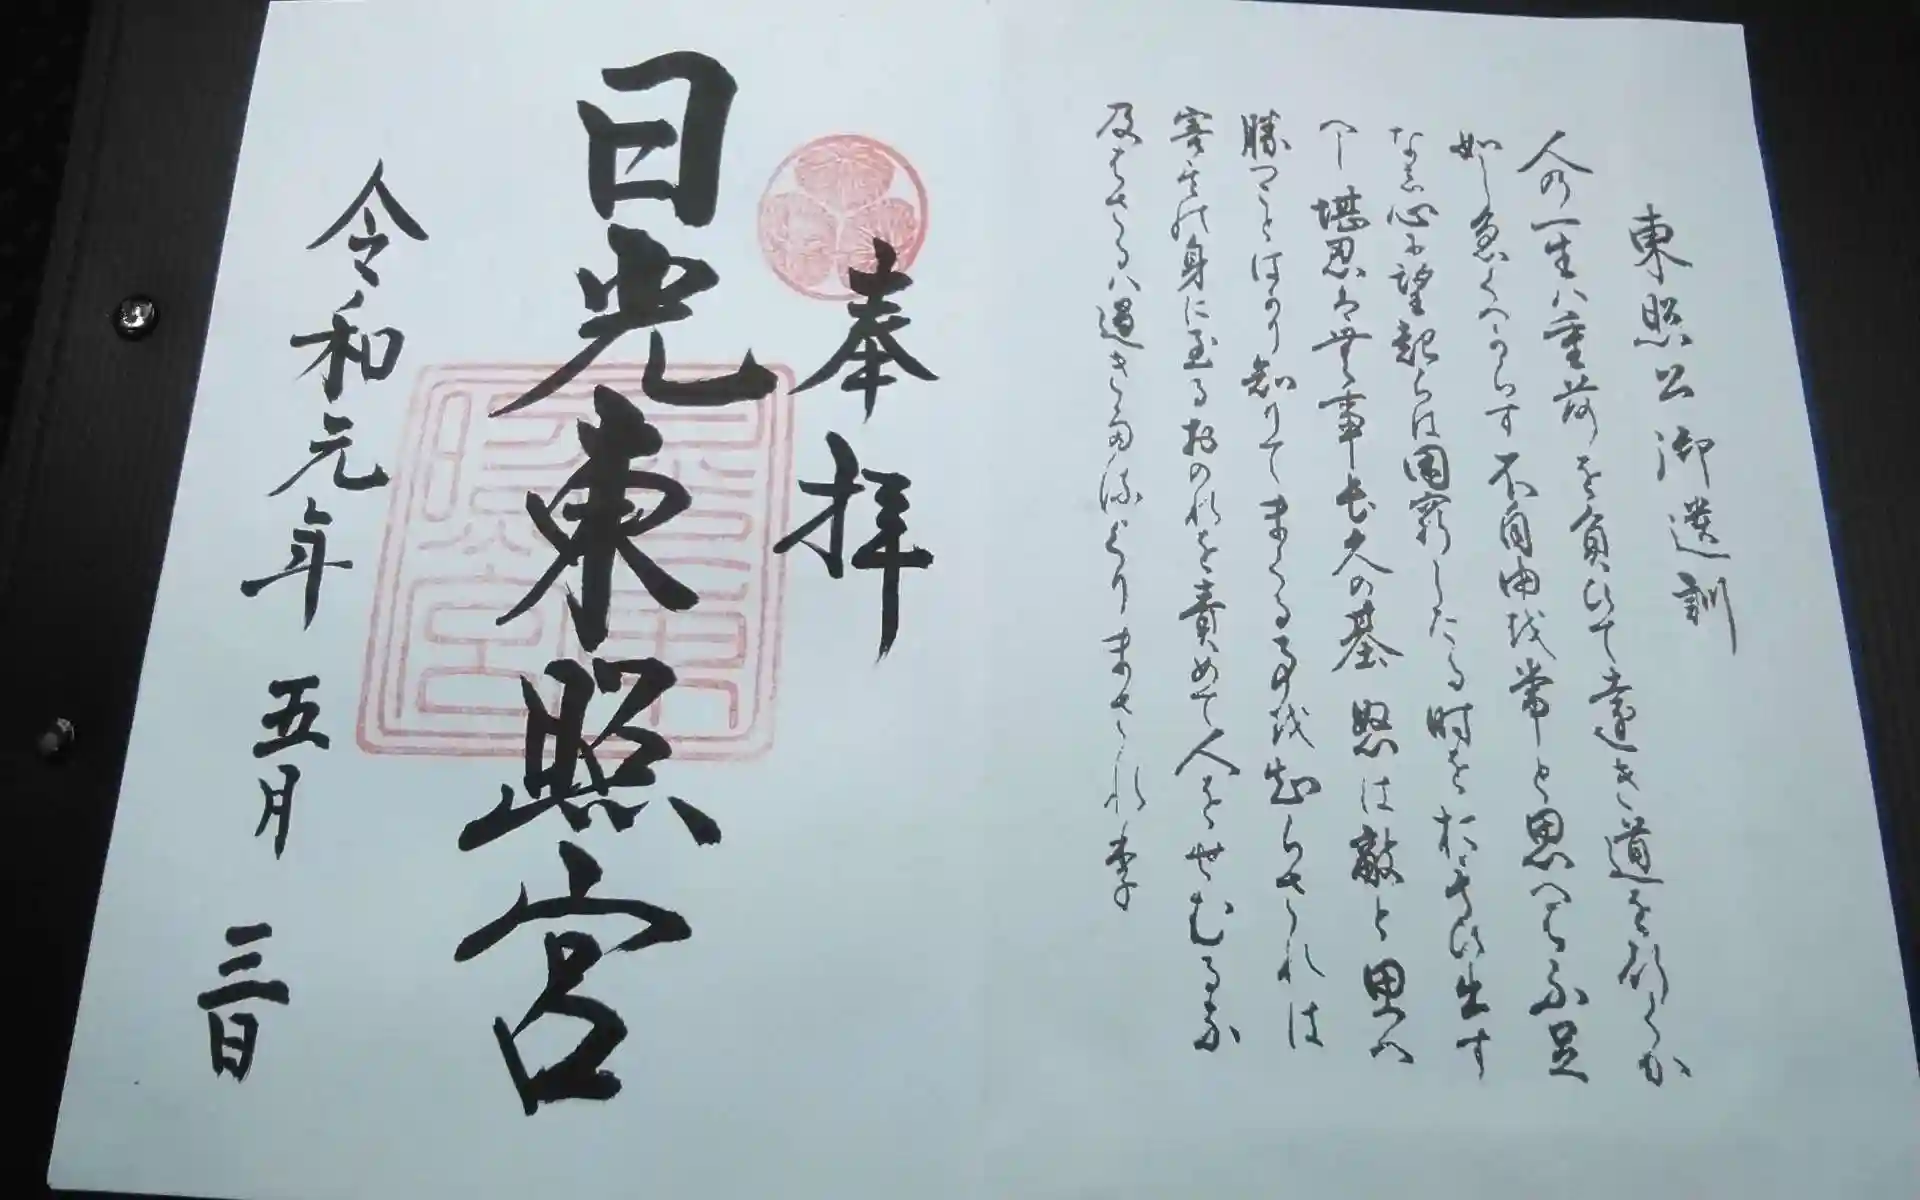 東照公御遺訓
人の一生ハ重荷を負ひて遠き道を行くか
如し急くへからす不自由を常と思へは不足
なし心に望起らは困窮したる時を思ひ出す
へし堪忍は無事長久の基怒は敵と思へ
勝つことはかり知りてまくる事を知らされは
害其の身に至るおのれを責めて人をせむるな
及はさるハ過きたるよりまされり
奉拝
日光東照宮
令和元年五月三日